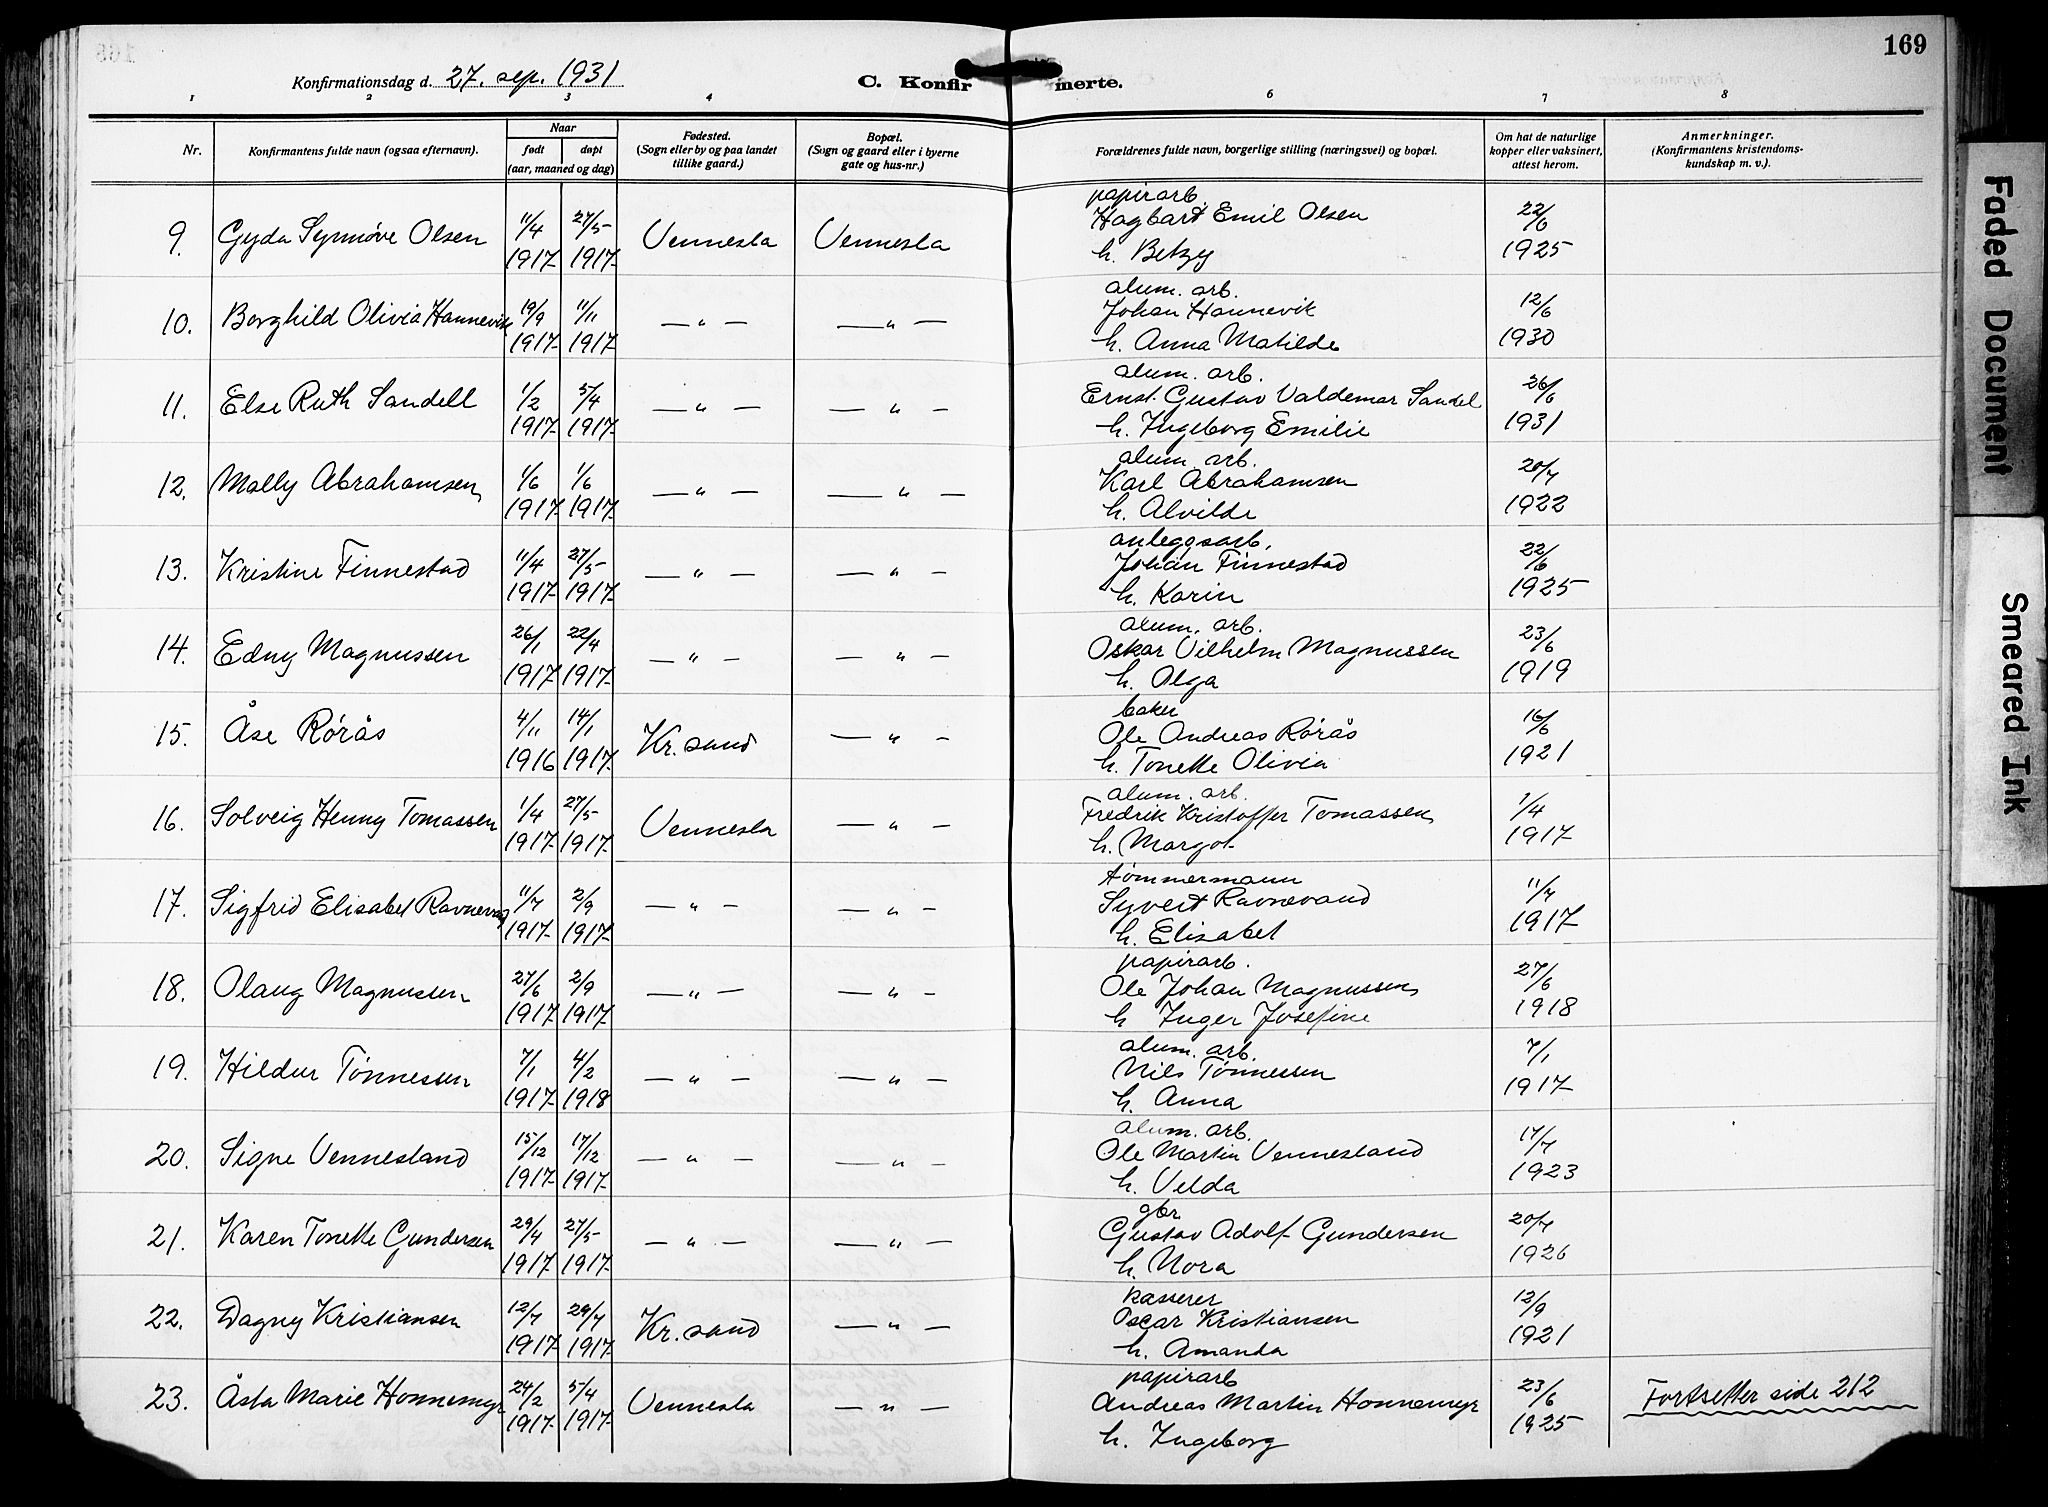 169
Konfirmationsdag d. 27. sep. 1931
C. Konfirmerte.
1 2 3 4 5 6 7 8
Nr. Konfirmantens fulde navn (ogsaa efternavn). Naar født døpt (aar, maaned og dag) Fødested. (Sogn eller by og paa landet tillike gaard.) Bopæl. (Sogn og gaard eller i byerne gate og hus-nr.) Forældrenes fulde navn, borgerlige stilling (næringsvei) og bopæl. Om hat de naturlige kopper eller vaksinert, attest herom. Anmerkninger. (Konfirmantens kristendomskundskap m. v.).
papirarb.
9. Gyda Synnøve Olsen 11/4 1917 27/5 1917 Vennesla Vennesla Hagbart Emil Olsen 22/6 1925
h. Betzy
alum. arb.
10. Borghild Olivia Hannevik 19/9 1917 11/11 1917 — " — — " — Johan Hannevik 12/6 1930
h. Anna Matilde
alum. arb.
11. Else Ruth Sandell 1/2 1917 5/4 1917 — " — — " — Ernst Gustav Valdemar Sandel 26/6 1931
h. Ingeborg Emilie
alum. arb.
12. Molly Abrahamsen 1/6 1917 1/6 1917 — " — — " — Karl Abrahamsen 20/7 1922
h. Alvilde
anleggsarb.
13. Kristine Finnestad 11/4 1917 27/5 1917 — " — — " — Johan Finnestad 22/6 1925
h. Karin
alum. arb.
14. Edny Magnussen 26/1 1917 22/4 1917 — " — — " — Oskar Vilhelm Magnussen 23/6 1919
h. Olga
baker
15. Åse Rørås 4/11 1916 14/1 1917 Kr. sand — " — Ole Andreas Rørås 16/6 1921
h. Tonette Olivia
alum. arb.
16. Solveig Henny Tomassen 1/4 1917 27/5 1917 Vennesla — " — Fredrik Kristoffer Tomassen 1/4 1917
h. Margot
tømmermann
17. Sigfrid Elisabet Ravnevand 11/7 1917 2/9 1917 — " — — " — Syvert Ravnevand 11/7 1917
h. Elisabet
papirarb.
18. Olaug Magnussen 27/6 1917 2/9 1917 — " — — " — Ole Johan Magnussen 27/6 1918
h Inger Josefine
alum. arb.
19. Hildur Tønnessen 7/1 1917 4/2 1918 — " — — " — Nils Tønnessen 7/1 1917
h. Anna
alum. arb.
20. Signe Vennesland 15/12 1917 17/12 1917 — " — — " — Ole Martin Vennesland 17/7 1923
h. Velda
gbr
21. Karen Tonette Gundersen 29/4 1917 27/5 1917 — " — — " — Gustav Adolf Gundersen 20/7 1926
h. Nora
kasserer
22. Dagny Kristiansen 12/7 1917 29/7 1917 Kr. sand — " — Oscar Kristiansen 12/9 1921
h. Amanda
papirarb
23. Åsta Marie Honnemyr 24/2 1917 5/4 1917 Vennesla — " — Andreas Martin Honnemyr 23/6 1925 Fortsetter side 212
h. Ingeborg
Faded Document
Smeared Ink